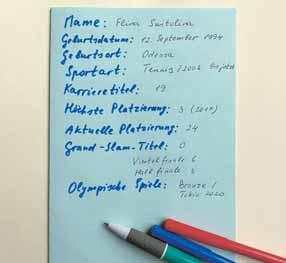 Name: Elina Switolina
Geburtsdatum: 12. September 1994
Geburtsort: Odessa
Sportart: Tennis/2004
Karrieretitel: 19
Höchste Platzierung: 3 (2017)
Aktuelle Platzierung: 24
Grand-Slam-Titel: 0
Viertelfinale 6
Halbfinale
Olympische Spiele: Bronze /
Tokio 2020